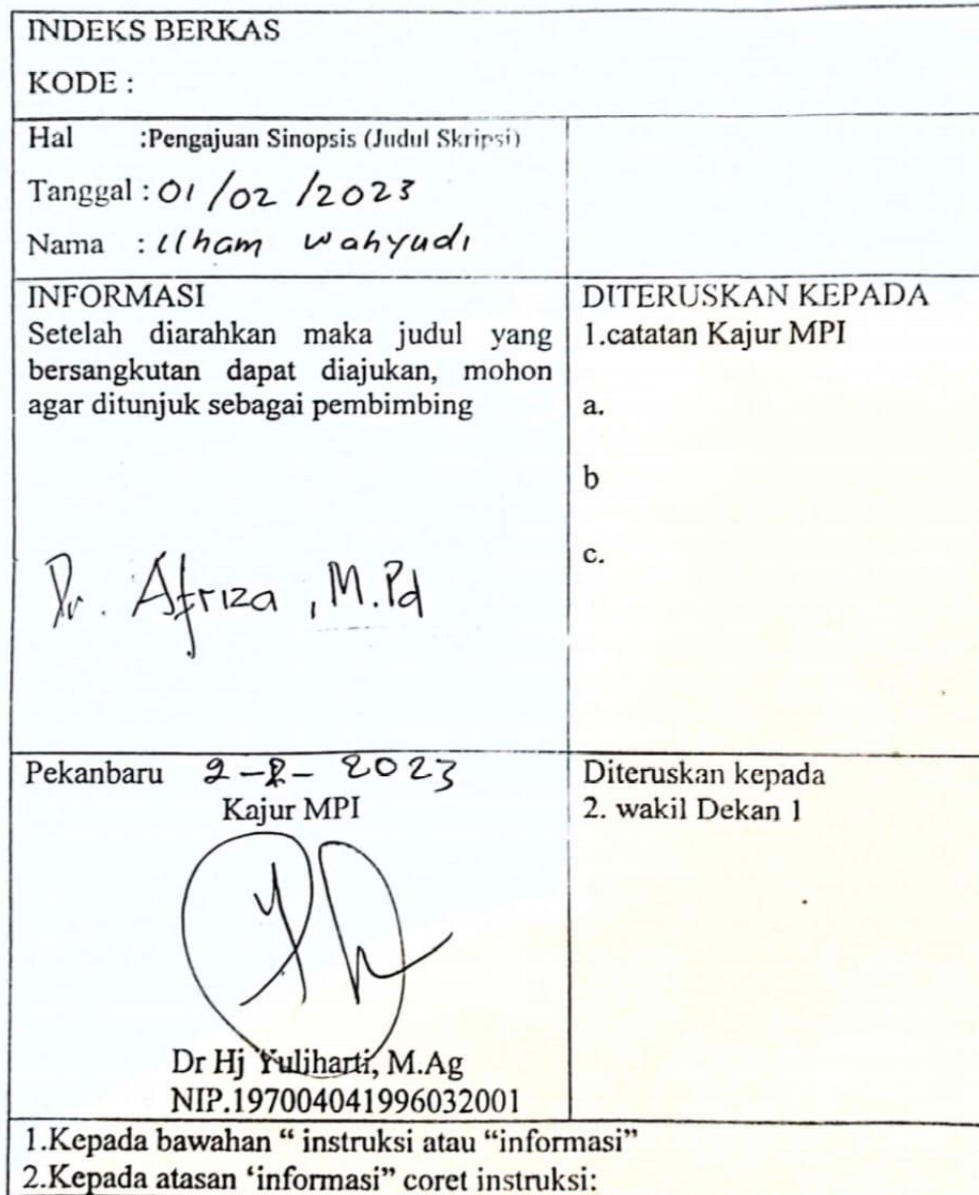 INDEKS BERKAS
KODE :
Hal :Pengajuan Sinopsis (Judul Skripsi)
Tanggal : 01/02/2023
Nama : Ilham Wahyudi
INFORMASI
Setelah diarahkan maka judul yang
bersangkutan dapat diajukan, mohon
agar ditunjuk sebagai pembimbing
Dr. Afriza, M.Pd
DITERUSKAN KEPADA
1.catatan Kajur MPI
a.
b
c.
Pekanbaru 2-2-2023
Kajur MPI
Dr Hj Yuliharti, M.Ag
NIP.197004041996032001
Diteruskan kepada
2. wakil Dekan 1
1.Kepada bawahan “ instruksi atau “informasi”
2.Kepada atasan ‘informasi” coret instruksi: